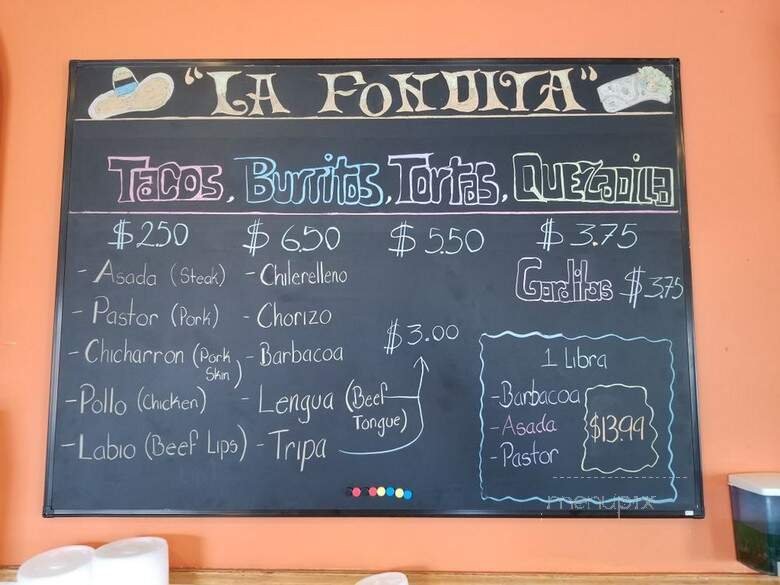 "LA FONDITA"
Tacos, Burritos, Tortas, Quezadilla
$2.50 $6.50 $5.50 $3.75
- Asada (Steak) - Chilerelleno
Gorditas $3.75
- Pastor (Pork) - Chorizo
$3.00
- Chicharron (Pork Skin) - Barbacoa
- Pollo (Chicken) - Lengua (Beef Tongue)
- Labio (Beef Lips) - Tripa
1 Libra
- Barbacoa
- Asada $13.99
- Pastor
menupix